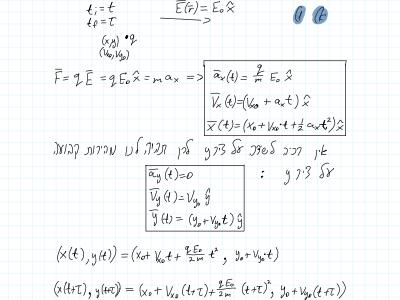 t_i = t  E̅(r̅) = E₀ x̂
t_f = τ
(x,y) •q
(V_x0, V_y0)
F̅ = q E̅ = q E₀ x̂ = m a_x => a̅_x(t) = q/m E₀ x̂
V̅_x(t) = (V_x0 + a_x t) x̂
x̅(t) = (x₀ + V_x0·t + ½ a_x t²) x̂
אין רכיב לשדה על ציר y לכן תהיה לנו מהירות קבועה
על ציר y :
a̅_y(t) = 0
V̅_y(t) = V_y0 ŷ
y̅(t) = (y₀ + V_y0 t) ŷ
(x(t), y(t)) = (x₀ + V_x0 t + qE₀/2m t², y₀ + V_y0·t)
(x(t+τ), y(t+τ)) = (x₀ + V_x0(t+τ) + qE₀/2m (t+τ)², y₀ + V_y0(t+τ))